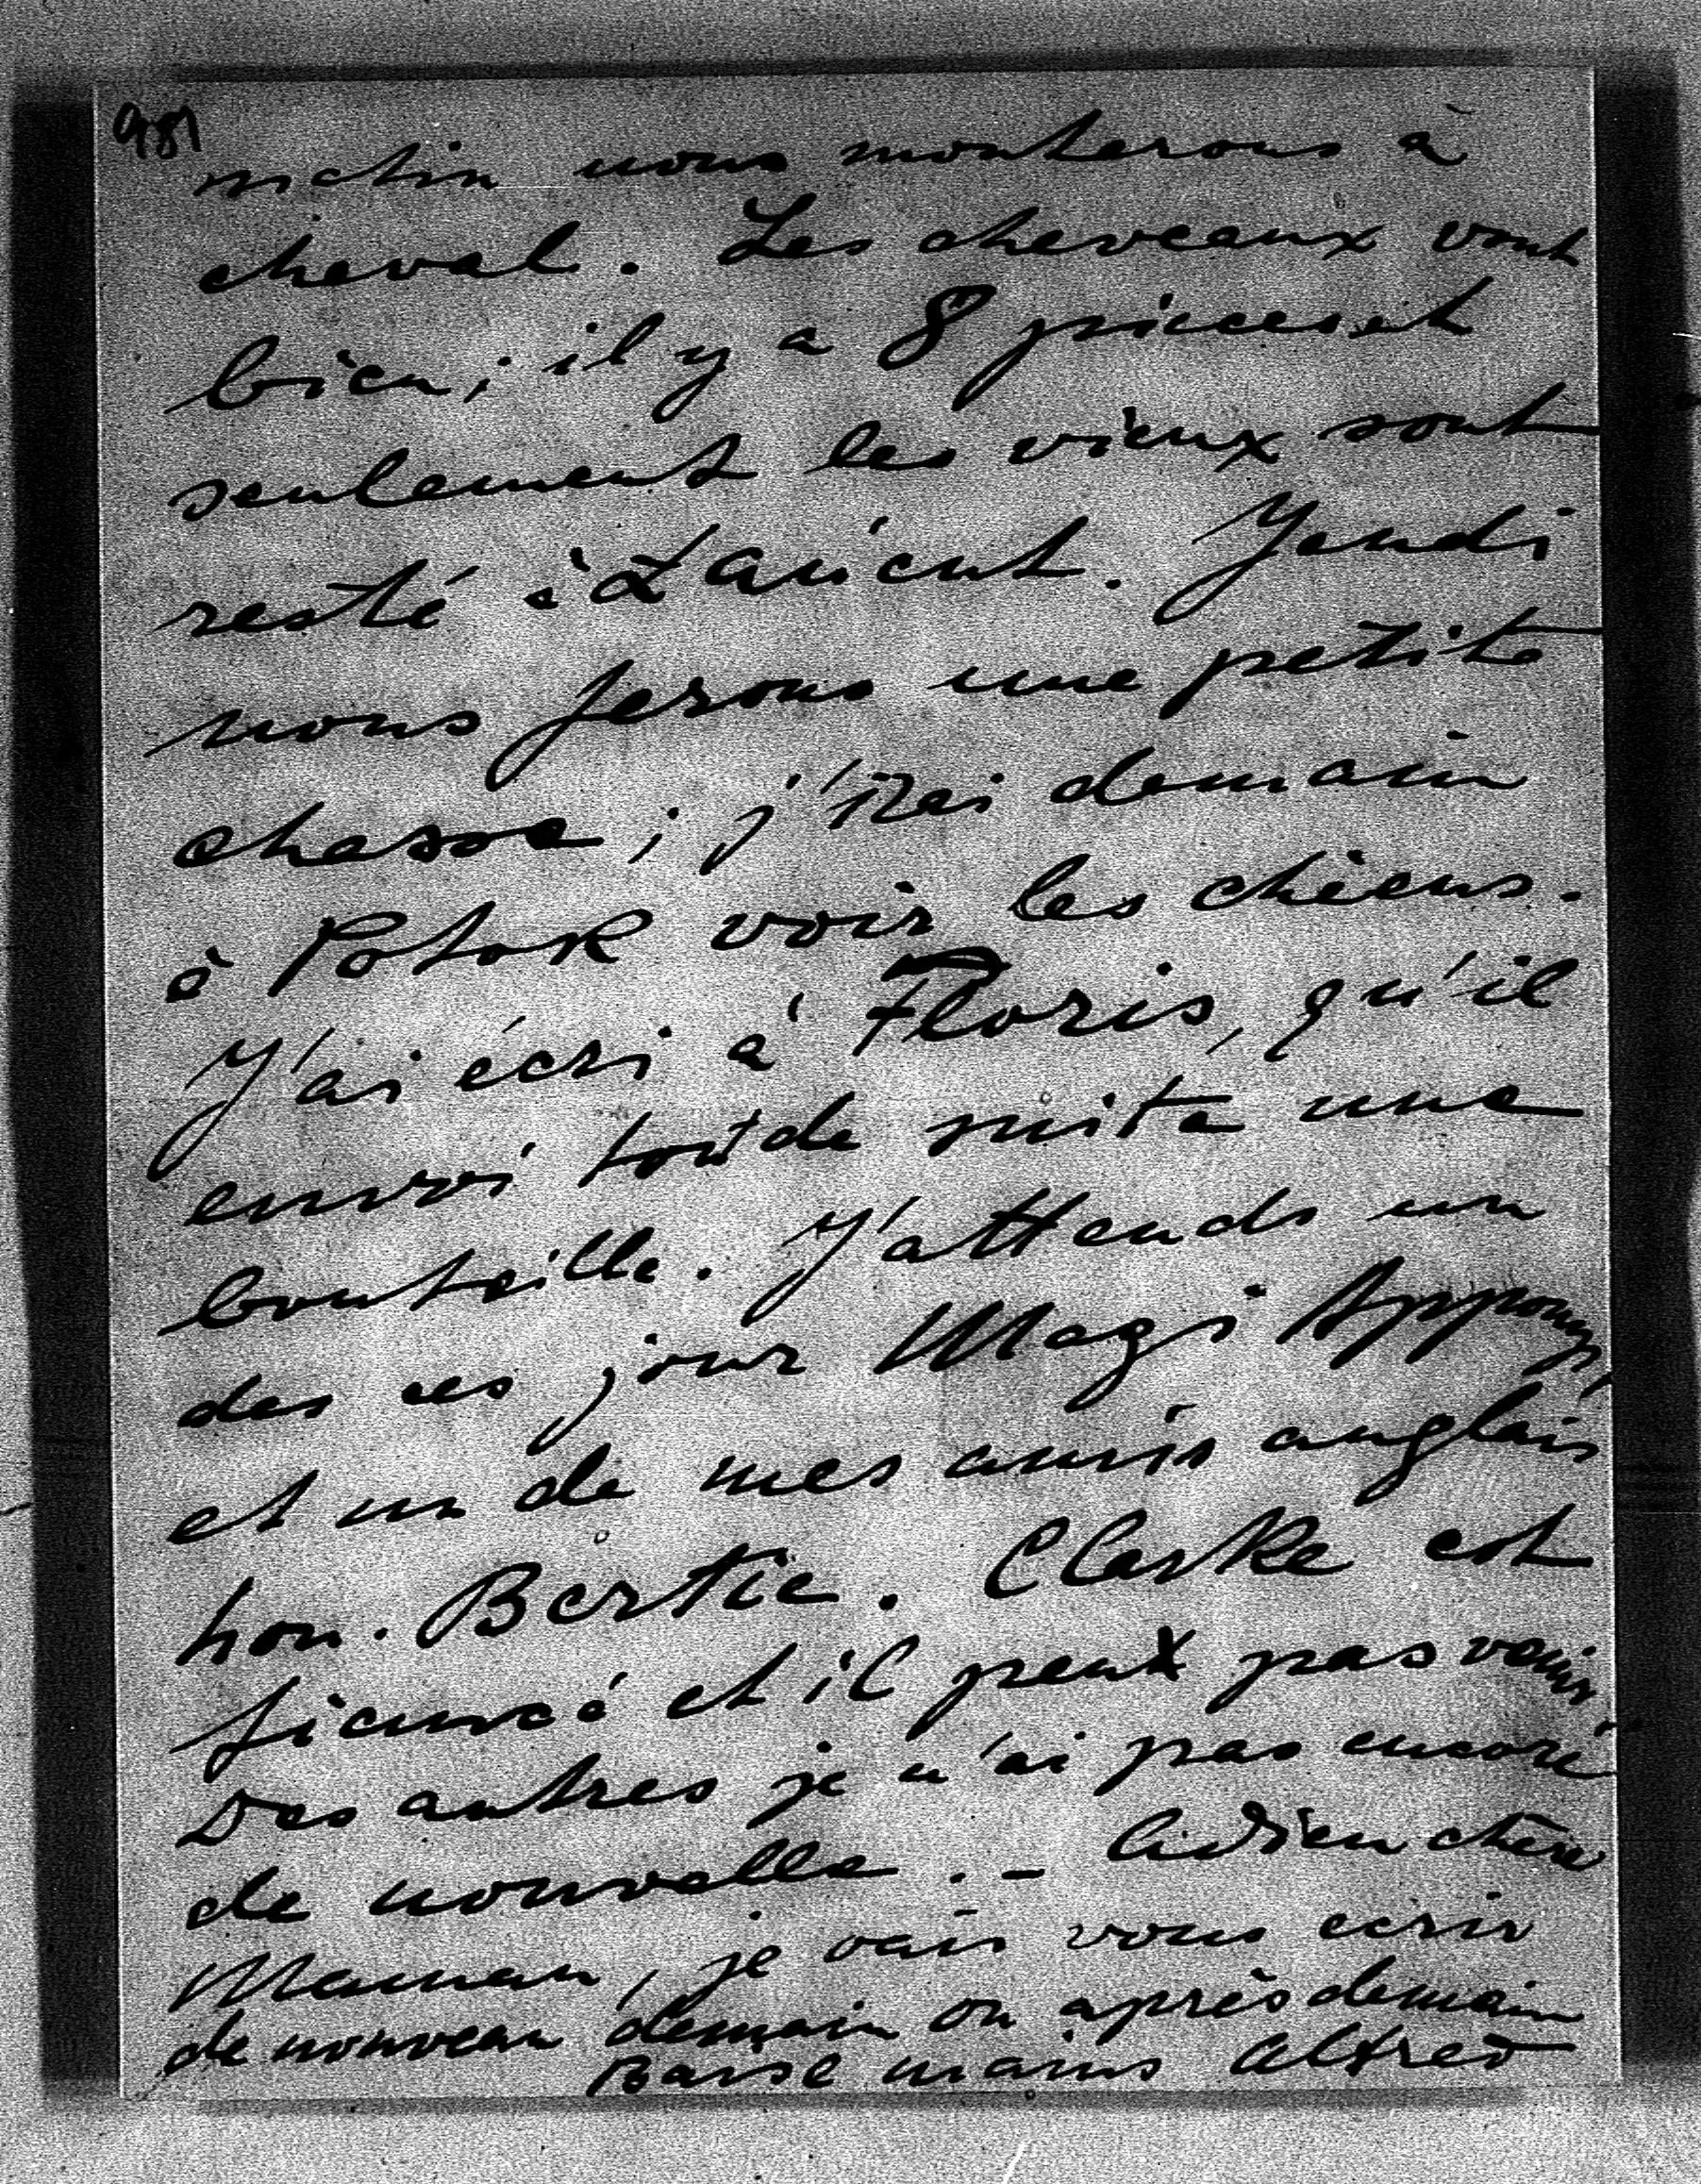 981
matin nous monterons à
cheval. Les cheveaux vont
bien; il y a 8 pièces et
seulement les vieux sont
resté à Łańcut. Jeudi
nous ferons une petite
chasse; j'irai demain
à Potok voir les chiens.
J'ai écri à Floris, qu'il
envoi tout de suite une
bouteille. J'attends un
des ces jour Magi Appony
et un de mes amis anglais
hon. Bertie. Clarke est
fiancé et il peux pas venir
Des autres je n'ai pas encore
de nouvelle. - Adieu chère
Maman, je vais vous écrir
de nouveau demain ou après demain
Baise mains Alfred